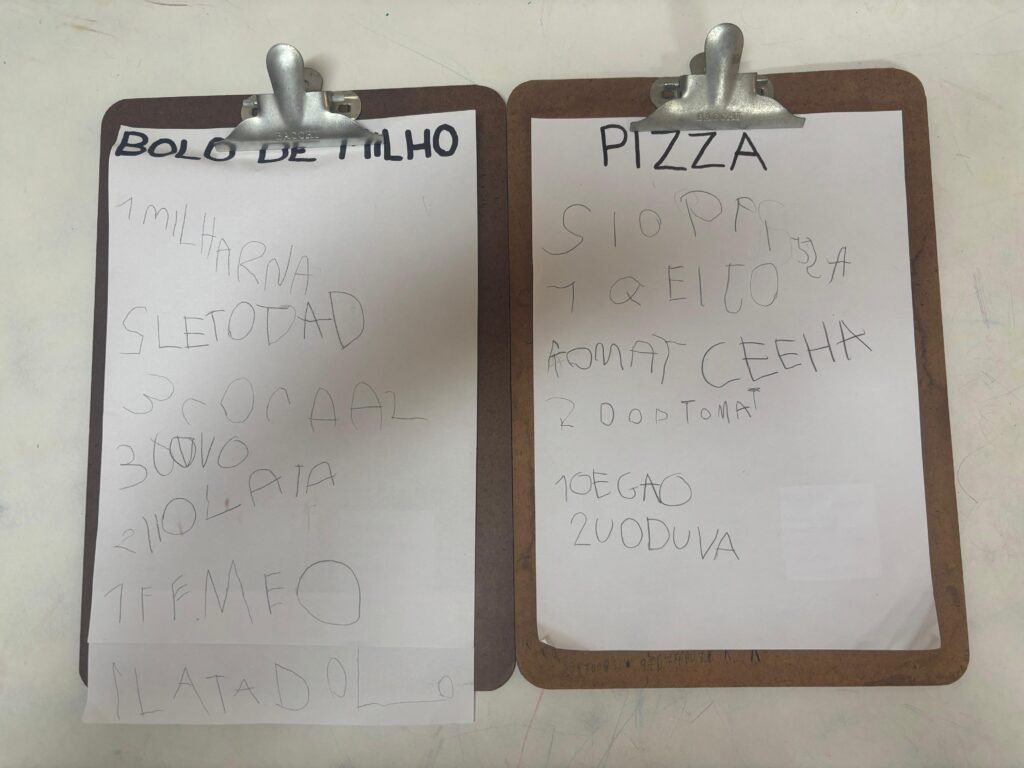 BOLO DE MILHO
1 MILHARNA
5 LETODAD
3 COCAAL
3 OVO
2 HOLATA
1 FEMEO
1 LATADOLO
PIZZA
SIOPA
1 QEIJO
AOMAT CEEHA
2 OOPTOMAT
1 OEGAO
2 UODUVA